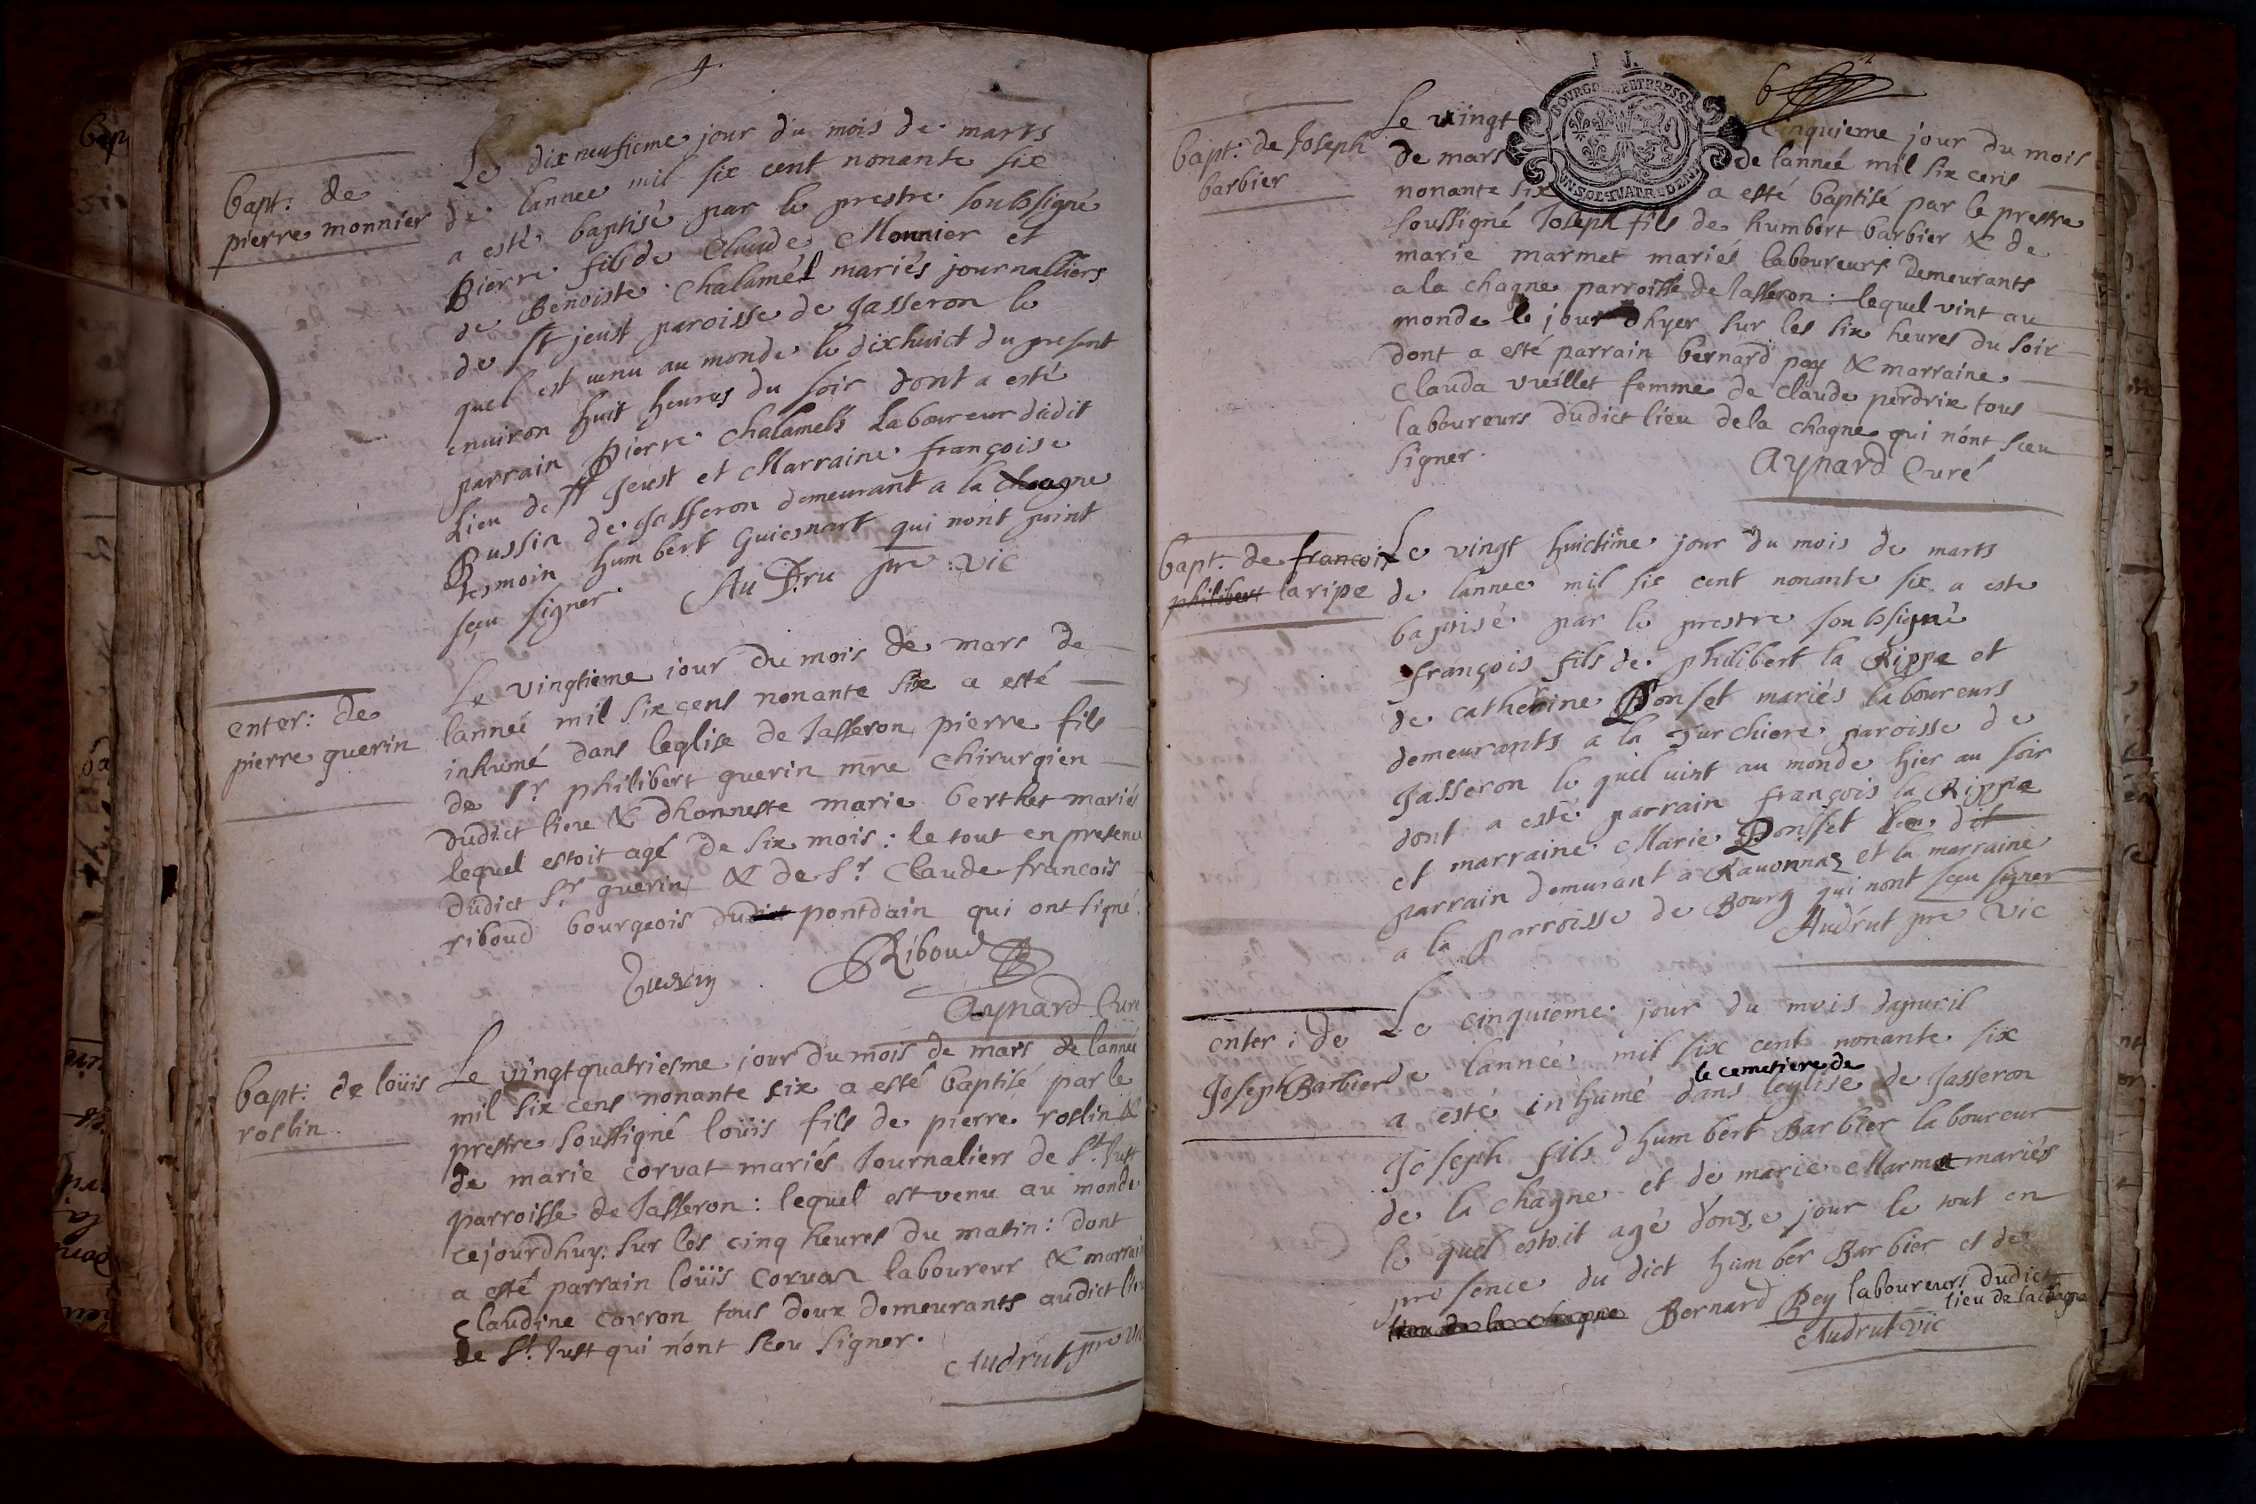 bapt: de
pierre monnier
Le dixneufieme jour du mois de marts
de lannee mil six cent nonante six
a esté baptisé par le prestre soubsigné
Pierre fils de Claude Monnier et
de Benoiste Chalamel mariés journalliers
de st jeust paroisse de Jasseron le
quel est venu au monde le dixhuict du present
environ huit heures du soir dont a esté
parrain Pierre Chalamels Laboureur dudit
Lieu de st Jeust et Marraine françoise
Bussin de Jasseron demeurant a la chagne
tesmoin humbert Guiesnart qui nont point
sceu signer. Au Dru pre vic
enter: de
pierre guerin
Le vingtieme jour du mois de mars de
lanneé mil six cens nonante six a esté
inhumé dans leglise de Jasseron pierre fils
de sr philibert guerin mre chirurgien
dudict lieu & dhonneste marie berthet mariés
lequel estoit agé de six mois: le tout en presence
dudict sr guerin & de sr Claude francois
riboud bourgeois du pontdain qui ont signé.
Guerin Riboud
Aynard Curé
bapt: de loüis
roslin
Le vingtquatriesme jour du mois de mars de lanneé
mil six cens nonante six a esté baptisé par le
prestre soussigné loüis fils de pierre roslin &
de marie corvat mariés Journaliers de St Just
parroisse de Jasseron: lequel est venu au monde
cejourdhuy sur les cinq heures du matin: dont
a esté parrain loüis corvat laboureur & marrai
claudine carron tous deux demeurants audict lieu
de St Just qui nónt sceu signer.
Audrut pre vic
6
BOURGOGNE ET BRESSE
UN SOL QUATRE DEN
bapt: de Joseph
barbier
Le vingt cinquieme jour du mois
de mars de lanneé mil six cens
nonante six a esté baptisé par le prestre
soussigné Joseph fils de humbert barbier & de
marie marmet mariés laboureurs demeurants
a la chagne parroisse de Jasseron: lequel vint au
monde le jour dhyer sur les six heures du soir
dont a esté parrain bernard pay & marraine
Clauda vveillet femme de claude perdrix tous
laboureurs dudict lieu dela chagne qui nónt sceu
signer.
Aynard Curé
bapt: de francois
philibert laripe
Le vingt huictime jour du mois de marts
de lannee mil sic cent nonante six a este
baptisé par le prestre soubsigné
françois fils de philibert la Rippe et
de catherine Ponset mariés laboureurs
demeurants a la Jurchiere paroisse de
Jasseron le quel vint au monde hier au soir
dont a esté parrain françois la Rippe
et marraine Marie Ponset le dit
parrain demurant a Ravonnas et la marraine
a la parroisse de Bourg qui nont sceu signer
Audrut pre vic
enter: de
Joseph Barbier
Le cinquieme jour du mois dapvril
de lanneé mil six cent nonante six
le cemetiere de
a esté inhumé dans leglise de Jasseron
Joseph fils dhumbert Barbier laboureur
de la chagne et de marie Marmet mariés
le quel estoit agé donze jour le tout en
presence du dict humber Barbier et de
lieu de la chagne Bernard Pey laboureurs dudict
lieu de la chagne
Audrut vic